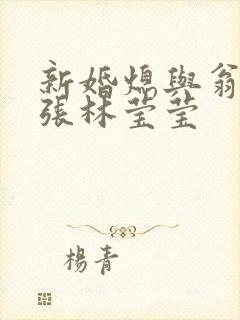 新婚熄與翁
張林莹莹
楊青